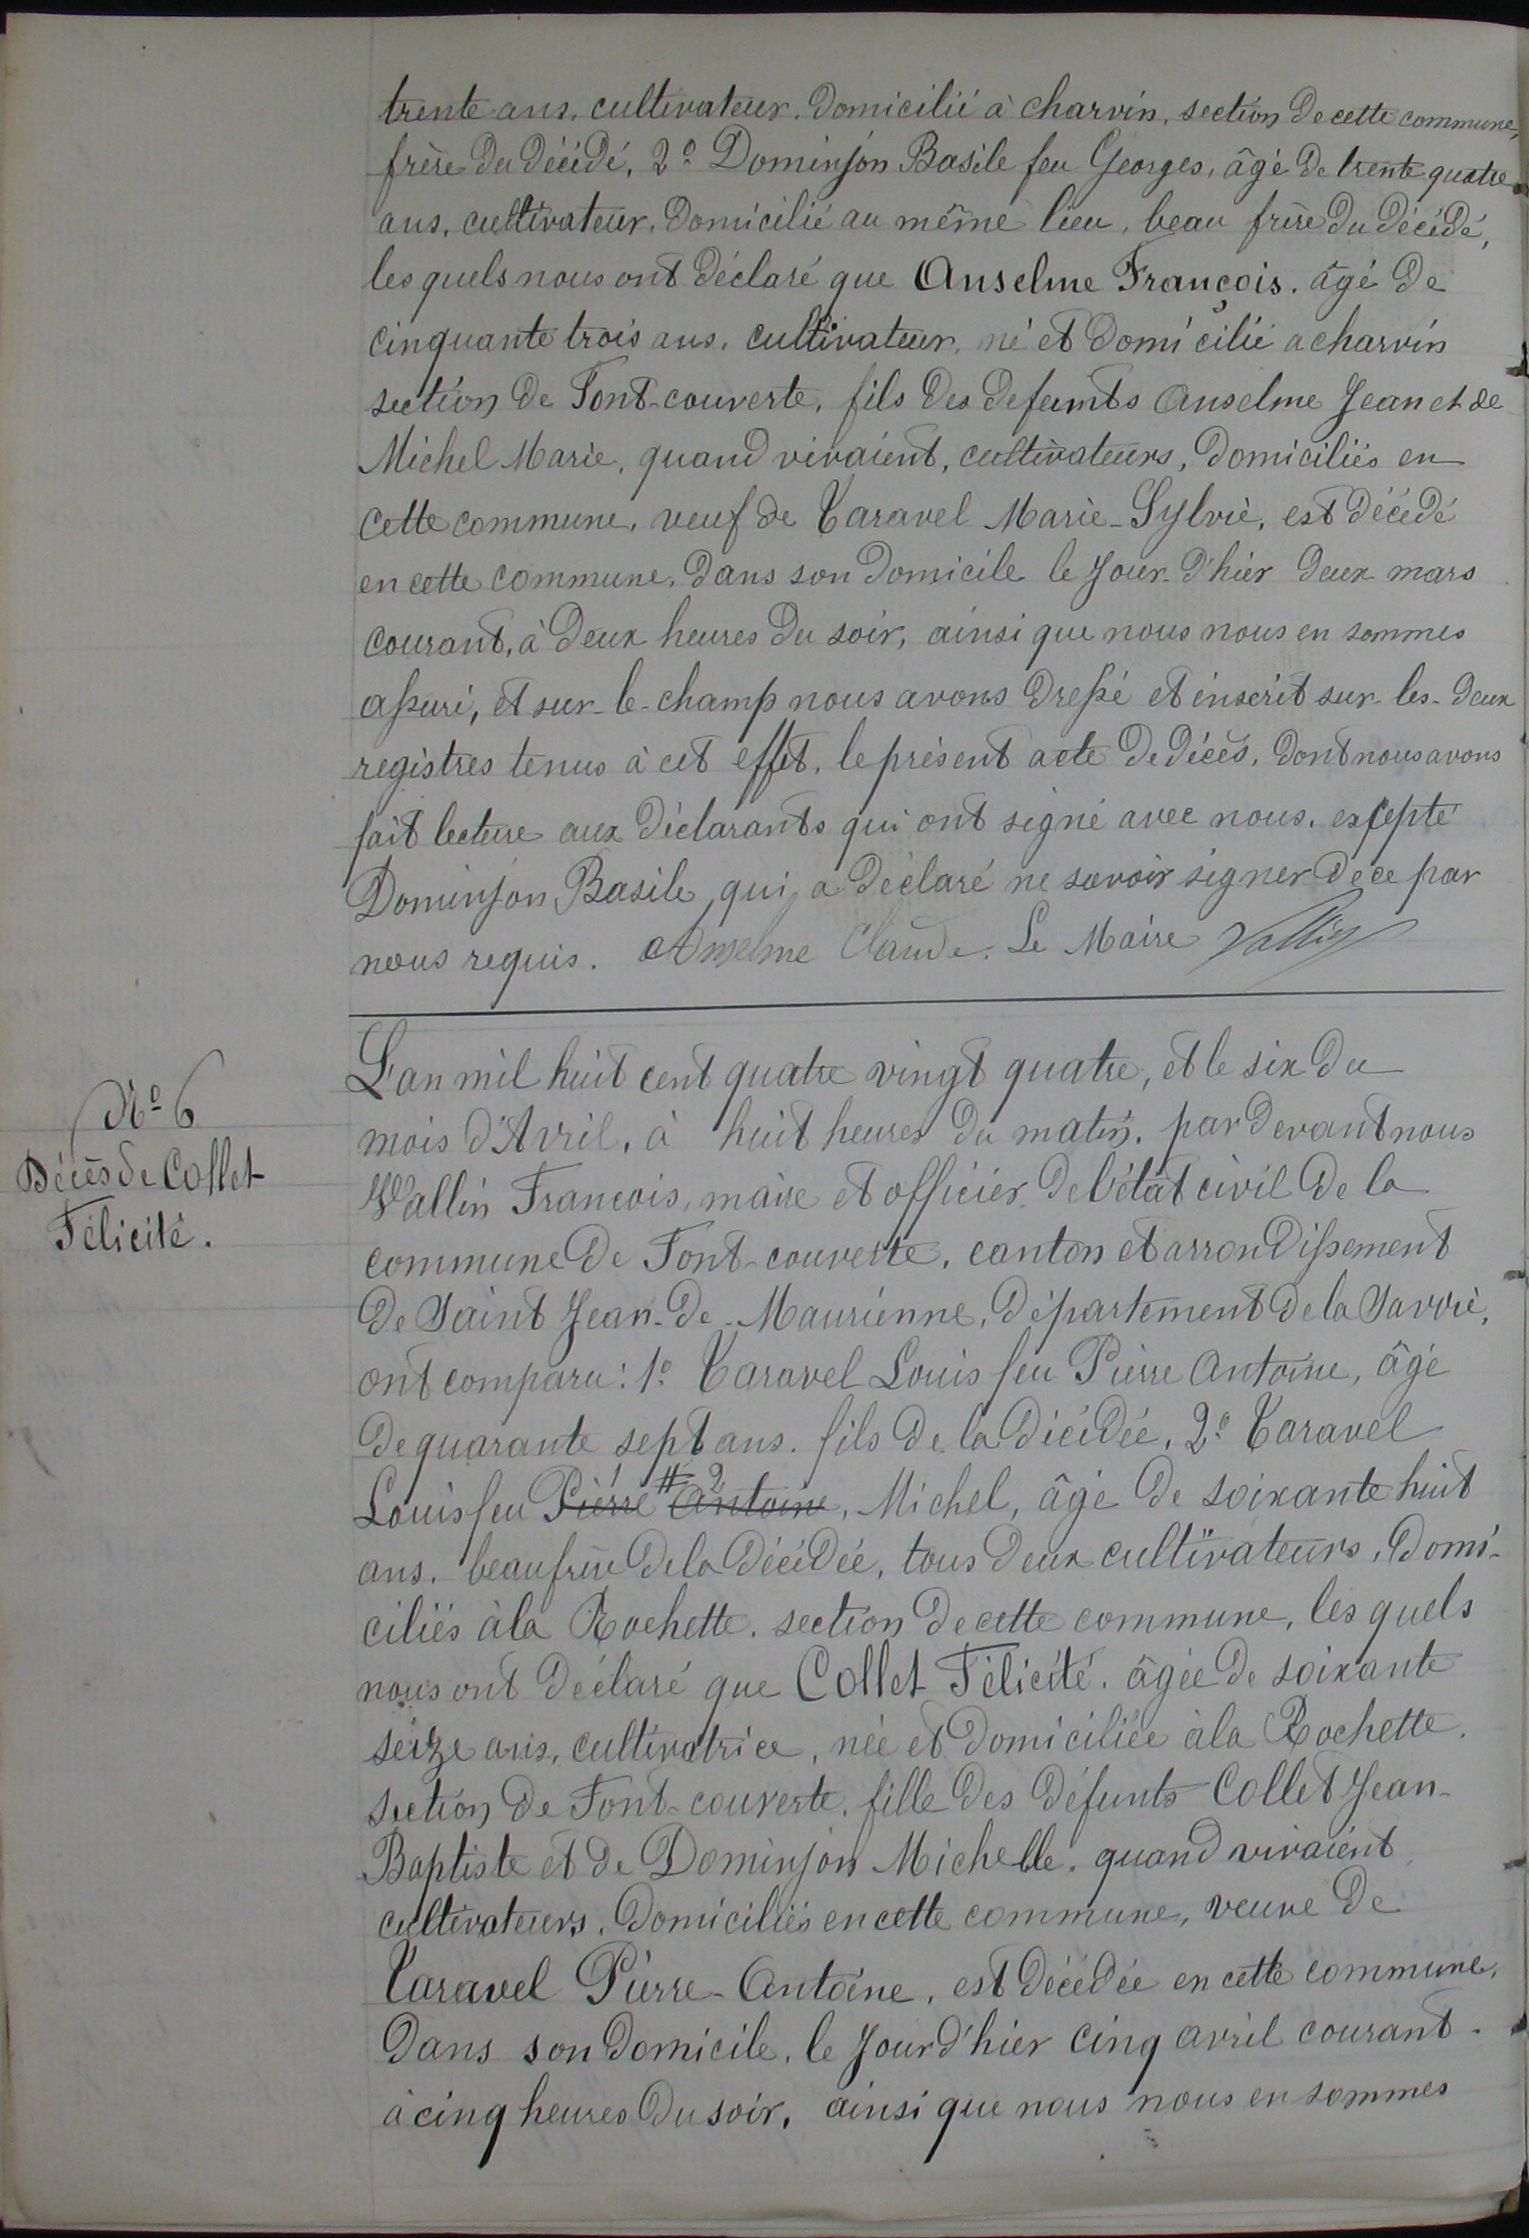 trente ans, cultivateur, domicilié à charvin, section de cette commune,
frère du décédé, 2° Dominjon Basile feu Georges, âgé de trente quatre
ans, cultivateur, domicilié au même lieu, beau frère du décédé,
les quels nous ont déclaré que Anselme François, âgé de
cinquante trois ans, cultivateur, né et domicilié a charvin
section de Font-couverte, fils des defeunts Anselme Jean et de
Michel Marie, quand vivaient, cultivateurs, domiciliés en
cette commune, veuf de Taravel Marie-Sylvie, est décédé
en cette commune, dans son domicile le jour-d'hier deux mars
courant, à deux heures du soir, ainsi que nous nous en sommes
assuré, et sur-le-champ nous avons dressé et inscrit sur-les-deux
registres tenus à cet effet, le présent acte de décès, dont nous avons
fait lecture aux déclarants qui ont signé avec nous, excepté
Dominjon Basile, qui a déclaré ne savoir signer de ce par
nous requis. Anselme Claude. Le Maire Vallin
L'an mil huit cent quatre vingt quatre, et le six du
mois d'Avril, à huit heures du matin, par devant nous
N° 6
Décès de Collet
Félicité.
Vallin Francois, maire et officier de l'état civil de la
commune de Font-couverte, canton et arrondissement
de Saint Jean-de-Maurienne, département de la Savoie,
ont comparu: 1° Taravel Louis feu Pierre Antoine, âgé
de quarante sept ans, fils de la décédée, 2° Taravel
Louis feu Pierre # Antoine, Michel, âgé de soixante huit
ans, beau frère de la décédée, tous deux cultivateurs, domi-
ciliés à la Rochette, section de cette commune, les quels
nous ont déclaré que Collet Félicité, âgée de soixante
seize ans, cultivatrice, née et domiciliée à la Rochette,
section de Font-couverte, fille des défunts Collet Jean-
Baptiste et de Dominjon Michelle, quand vivaient
cultivateurs, domiciliés en cette commune, veuve de
Taravel Pierre-Antoine, est décédée en cette commune,
dans son domicile, le jour d'hier cinq avril courant-
à cinq heures du soir, ainsi que nous nous en sommes